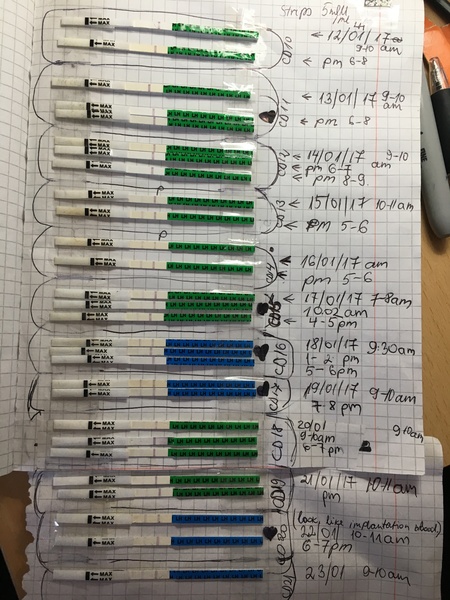 Strips 5mIU
/ml
12/01/17
9-10 am
CD10
pm 6-8
13/01/17 9-10
am
CD11
pm 6-8
14/01/17 9-10
am
CD12
pm 6-7
pm 8-9
15/01/17 10-11am
CD13
pm 5-6
16/01/17 am
CD14
pm 5-6
17/01/17 7-8am
10:02 am
4-5pm
18/01/17 9:30am
CD16
1-2 pm
5-6pm
19/01/17 9-10am
CD17
7-8 pm
20/01
9-10am
9-10am
CD18
6-7pm
21/01/17 10-11am
CD19
pm
(look like implantation blood)
22/01 10-11am
CD20
6-7pm
23/01 9-10am
CD21
MAX
LH